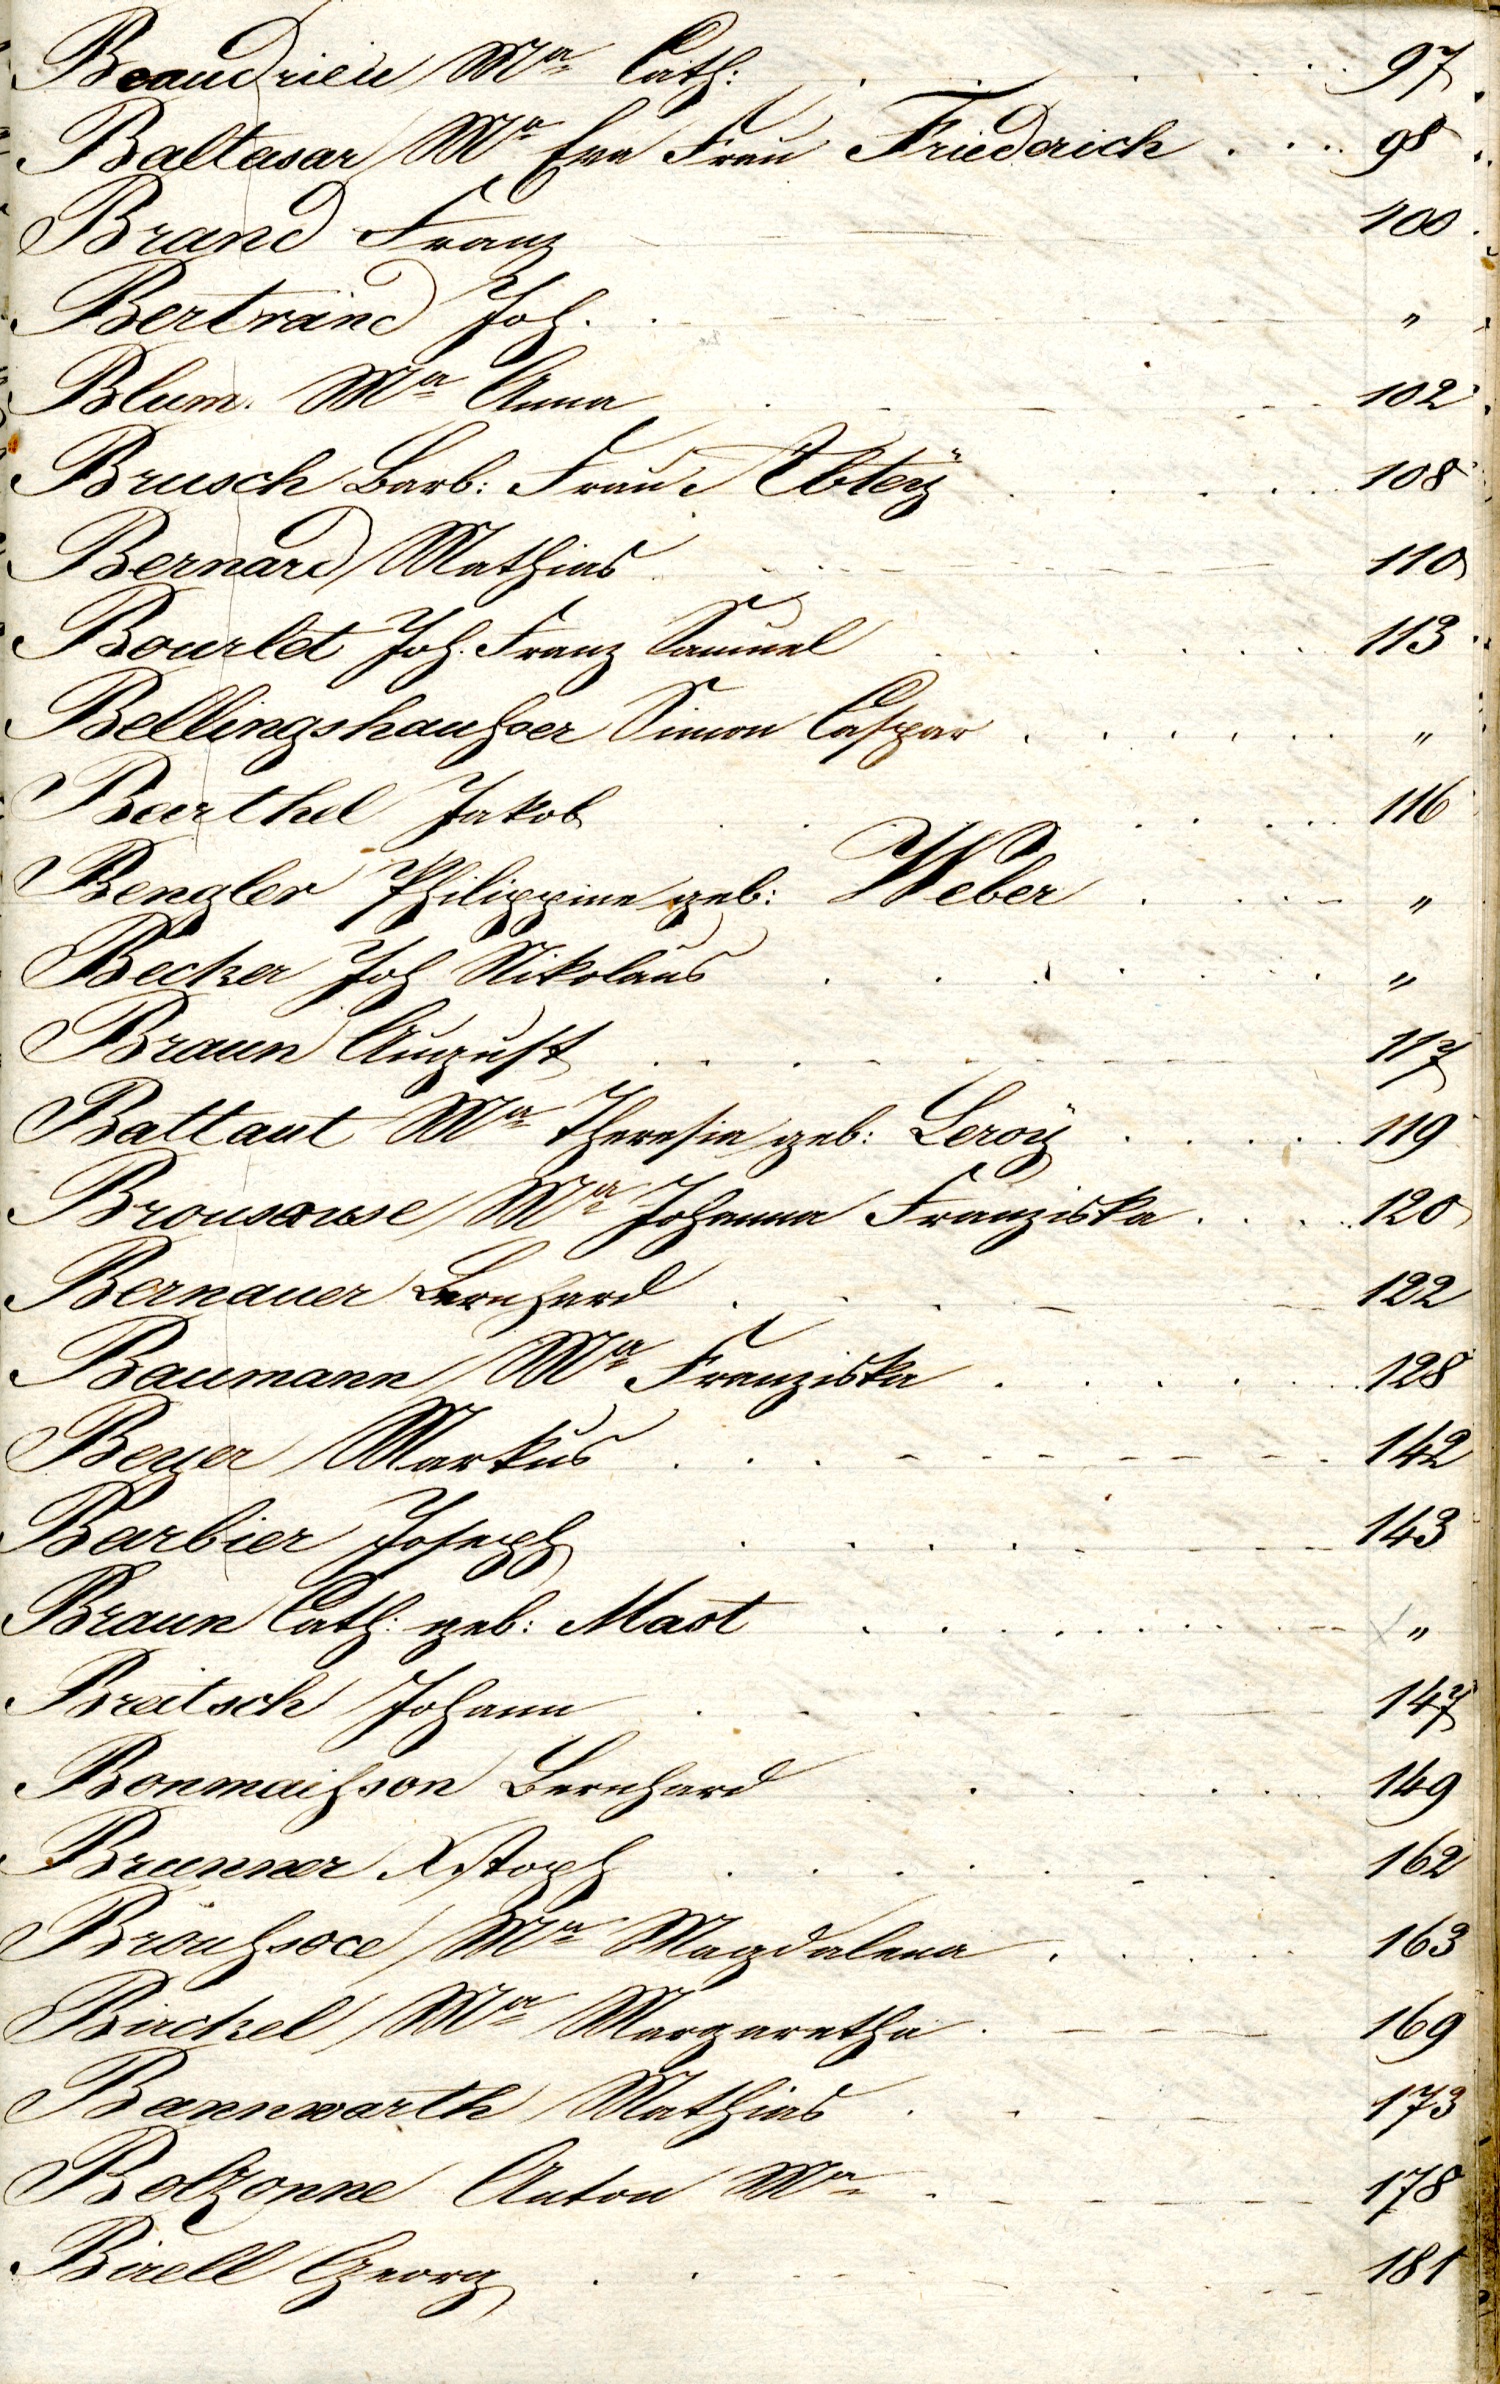 Beaudrieu Mª Cath: 97
Baltasar Mª Eva Frau Friederich 98
Brand Franz 100
Bertrand Joh. "
Blum. Mª Anna 102
Brusch Barb: Frau Ebteÿ 108
Bernard Mathias 110
Bourlet Joh. Franz Samuel 113
Bellingshaußer Simon Caspar "
Barthel Jakob 116
Bengler Philippine geb: Weber "
Becker Joh Nikolaus "
Braun August 117
Battaut Mª Theresia geb: Leroÿ 119
Brousousse Mª Johanna Franziska 120
Bernauer Bernhard 122
Baumann Mª Franziska 128
Beyer Markus 142
Barbier Joseph 143
Braun Cath: geb: Mast "
Breitsch Johann 147
Bonmaißon Bernhard 149
Brunner Xstoph 162
Mª Magdalena 163
Birckel Mª Margaretha 169
Bannwarth Mathias 173
Bolzonne Anton Mª 178
Birell Georg 181